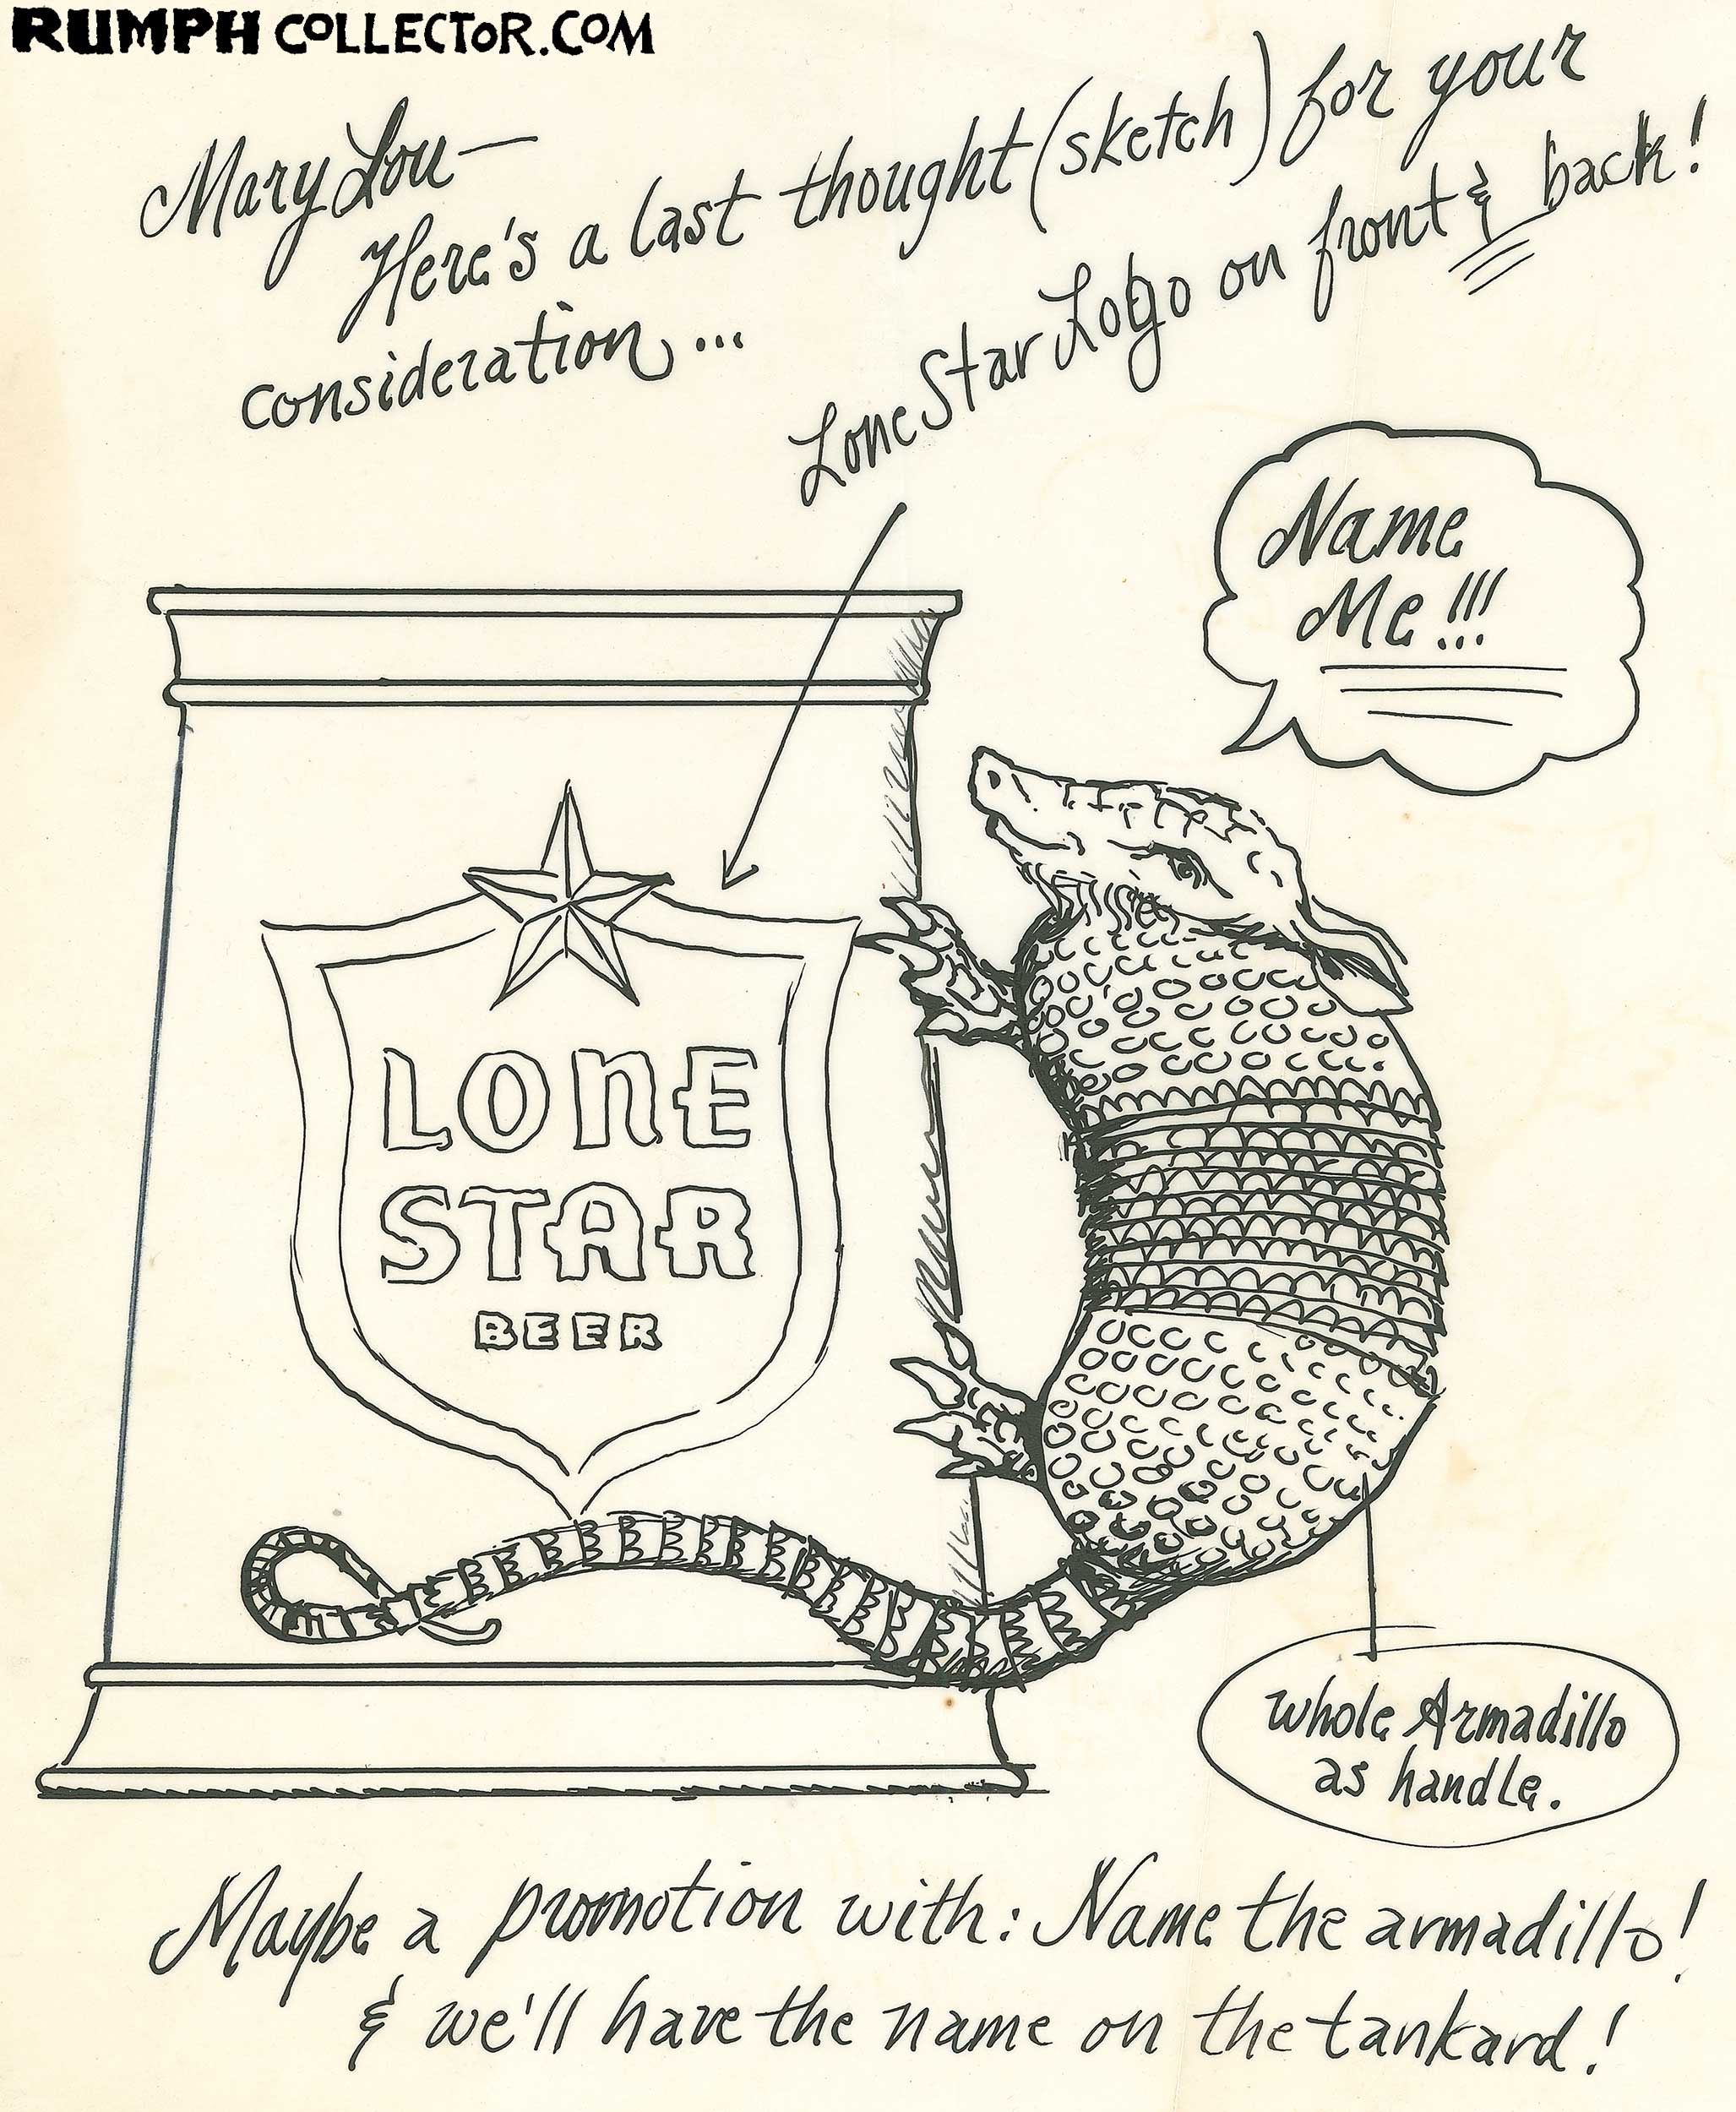 RUMPH COLLECTOR.COM
Mary Lou—
Here's a last thought (sketch) for your
consideration...
Lone Star Logo on front & back!
Name
Me!!!
LONE
STAR
BEER
whole Armadillo
as handle.
Maybe a promotion with: Name the armadillo!
& we'll have the name on the tankard!